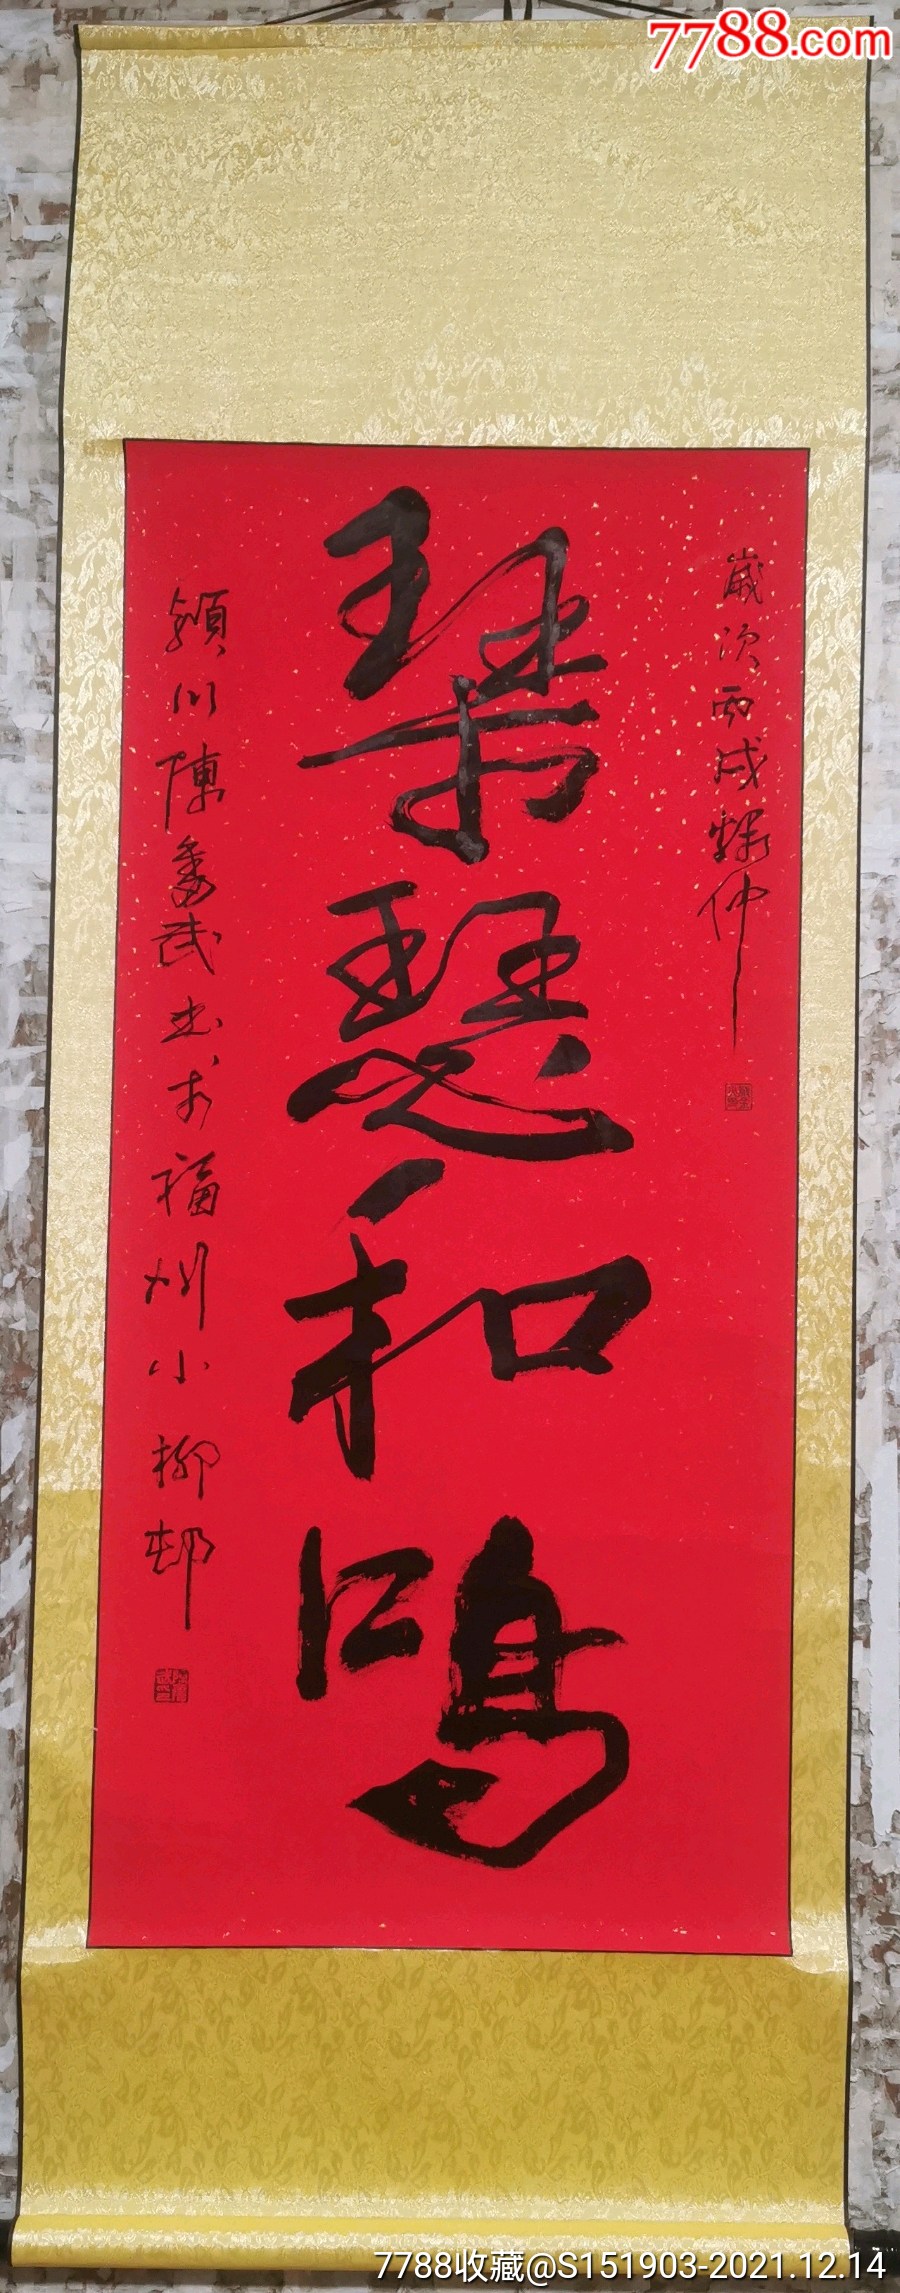 7788.com
歲次丙戌 仲
琴瑟和鳴
潁川陳奮武书於福州小柳邨
7788收藏@S151903-2021.12.14